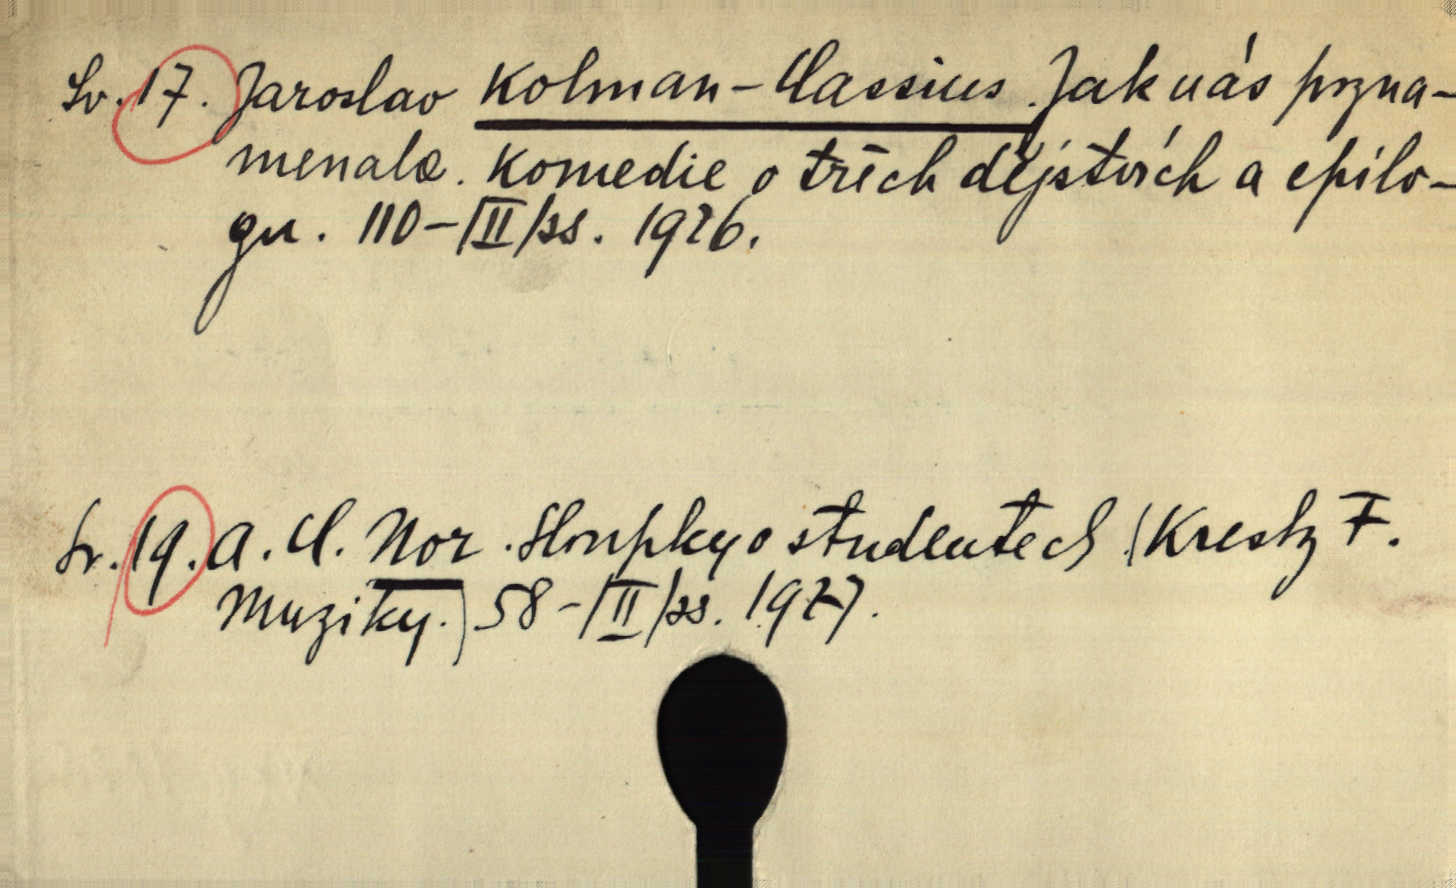 Sv. 17. Jaroslav Kolman-Cassius. Jak nás pozna-
menala. Komedie o třech dějstvích a epilo-
gu. 110-|II|ss. 1926.
Sv. 19. A. C. Nor. Sloupky o studentech. (Kresby F.
Muziky.) 58-|II|ss. 1927.